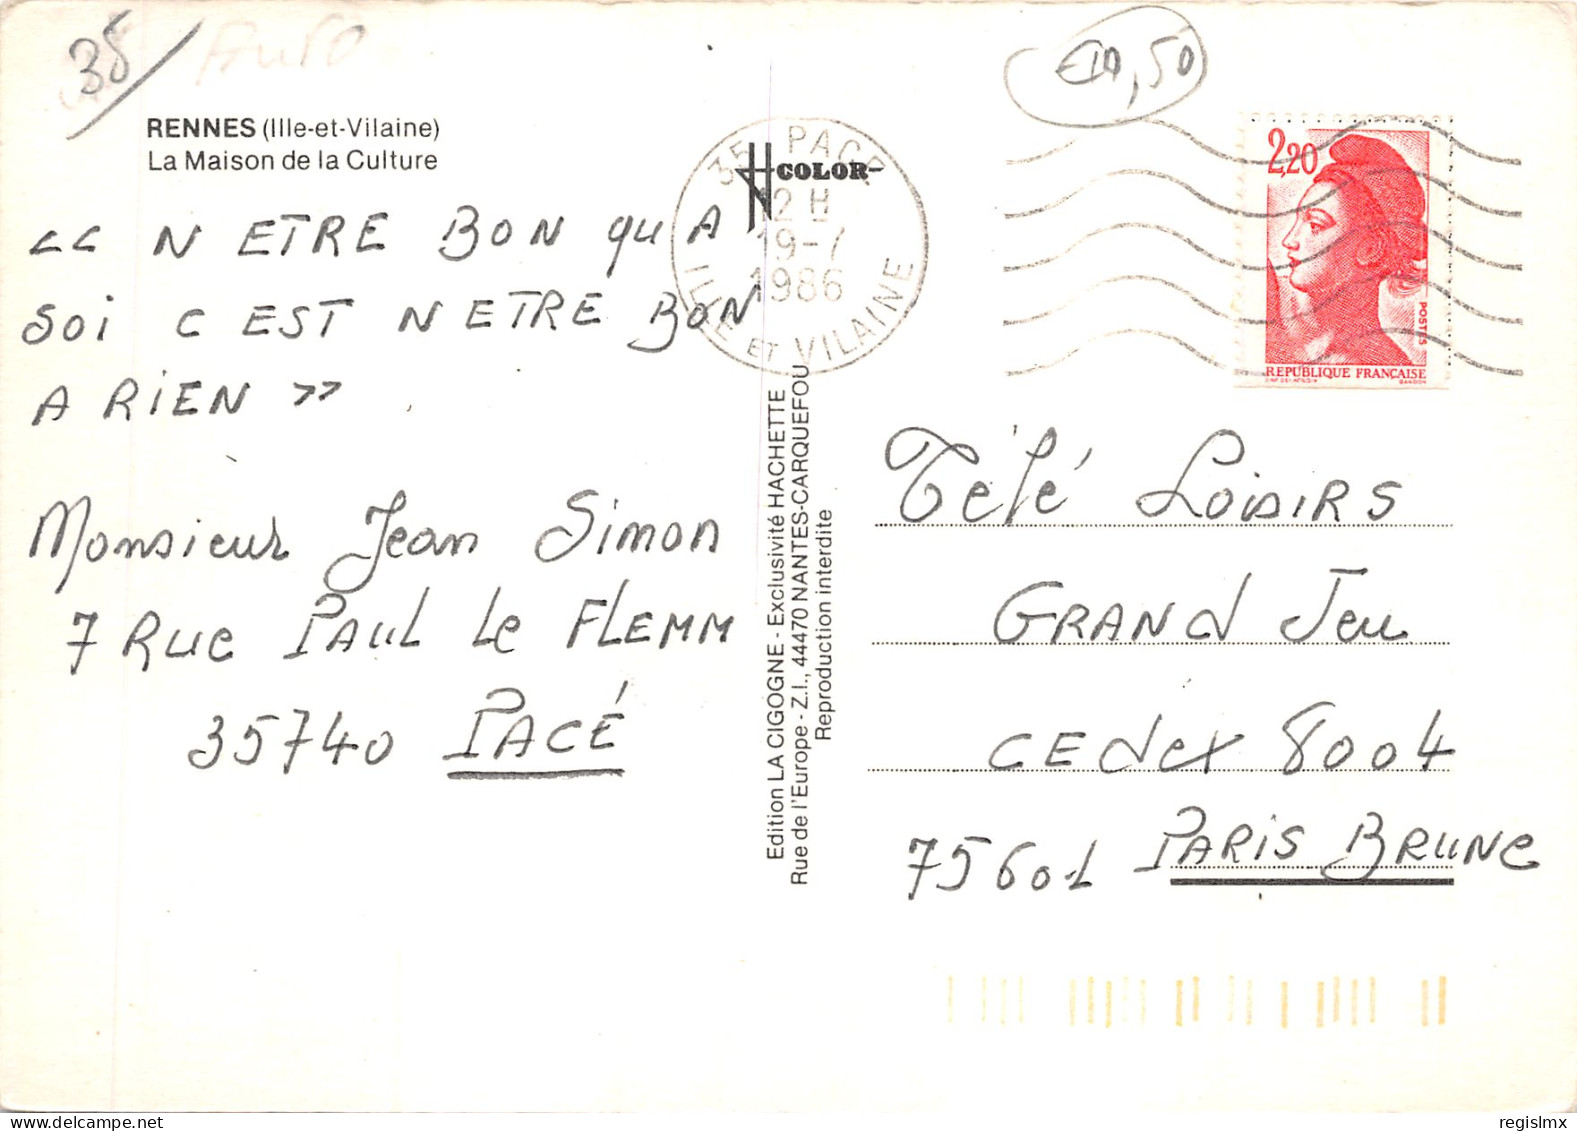 35
RENNES (Ille-et-Vilaine)
La Maison de la Culture
<< N ETRE BON QU A
SOI C EST N ETRE BON
A RIEN >>
Monsieur Jean Simon
7 Rue PAUL Le FLEMM
35740 PACÉ
H COLOR
35 PACE
12 H
19-7
1986
ILLE ET VILAINE
Edition LA CIGOGNE - Exclusivité HACHETTE
Rue de l'Europe - Z.I., 44470 NANTES-CARQUEFOU
Reproduction interdite
€10,50
2,20
POSTES
REPUBLIQUE FRANÇAISE
GANDON
Télé Loisirs
GRAND Jeu
CEdex 8004
75601 PARIS BRUNE
regislmx